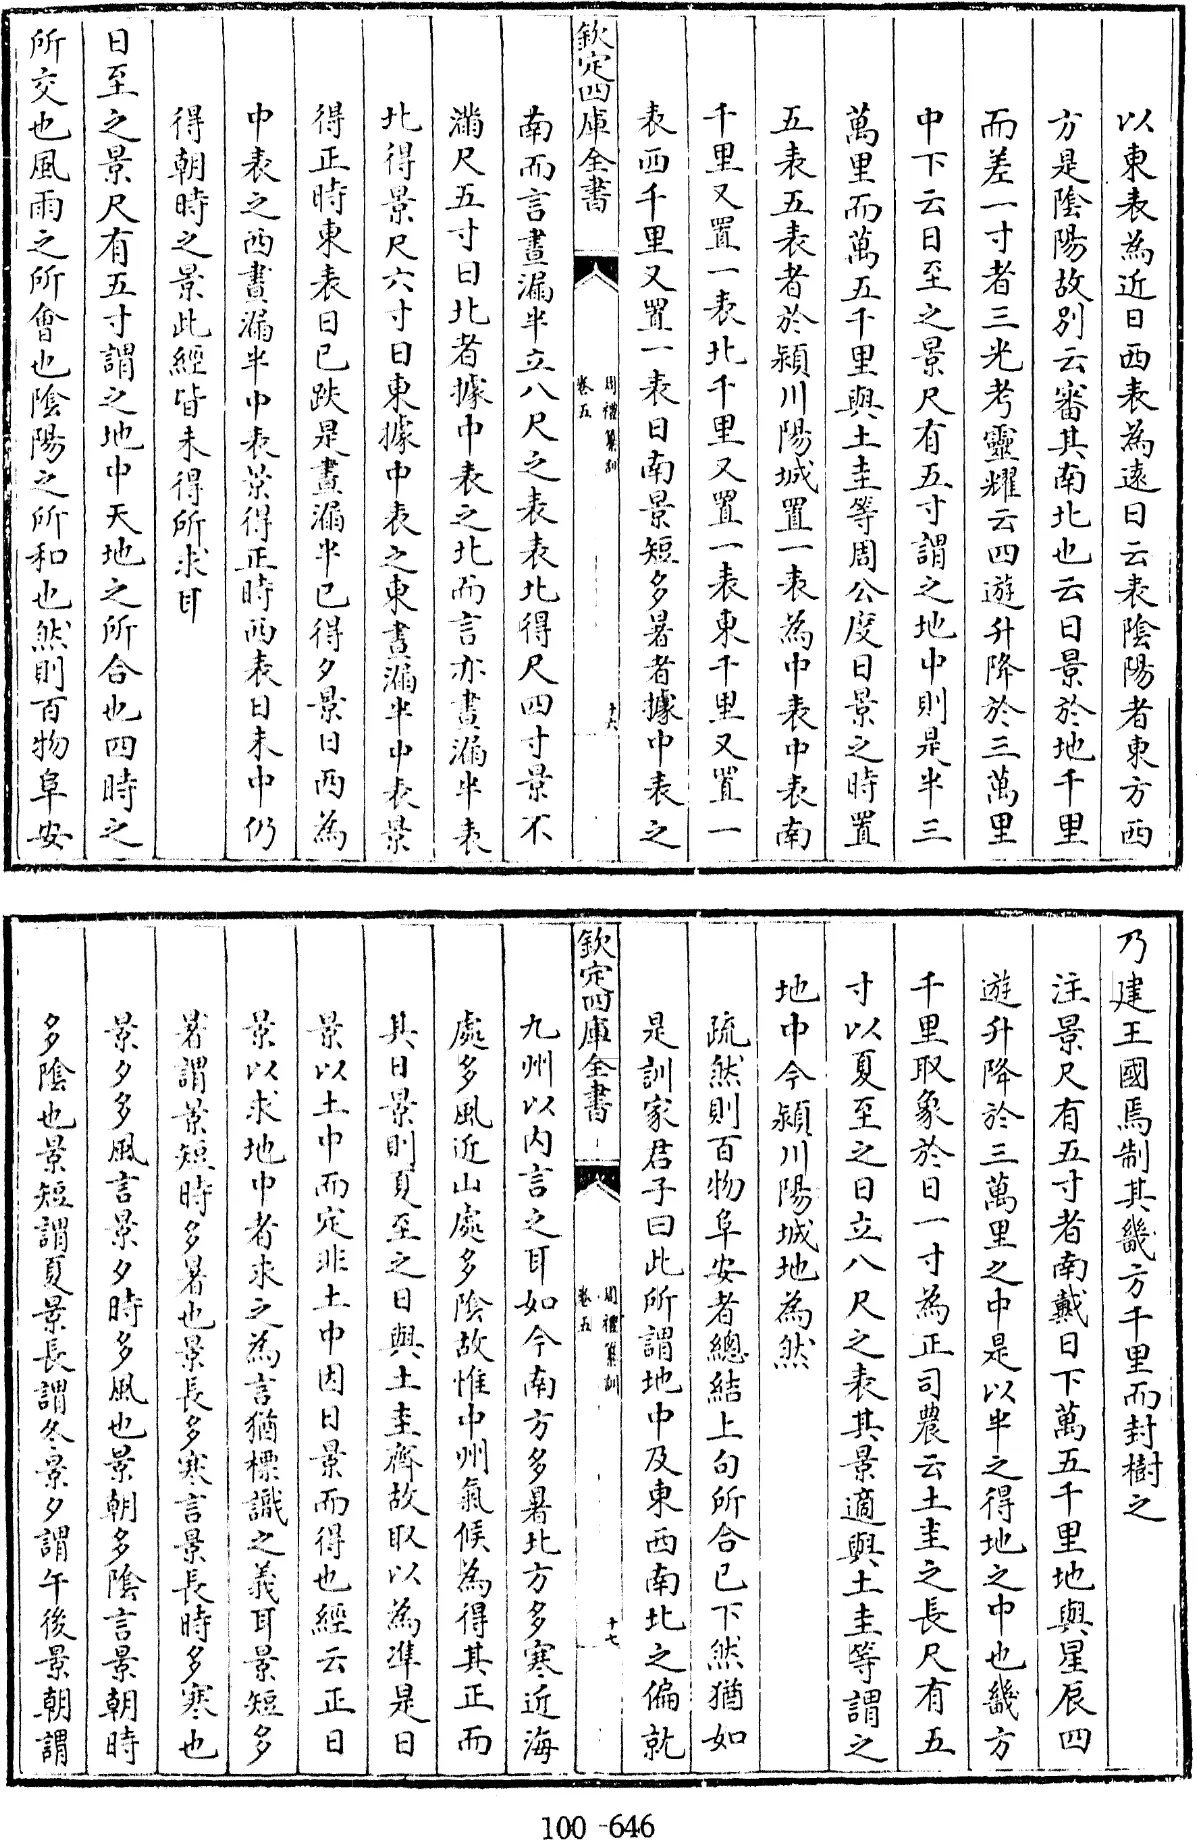 以東表為近日西表為遠日云表陰陽者東方西
方是陰陽故別云審其南北也云日景於地千里
而差一寸者三光考靈耀云四遊升降於三萬里
中下云日至之景尺有五寸謂之地中則是半三
萬里而萬五千里與土圭等周公度日景之時置
五表五表者於潁川陽城置一表為中表中表南
千里又置一表北千里又置一表東千里又置一
表西千里又置一表日南景短多暑者據中表之
欽定四庫全書
周禮纂訓
卷五
十六
南而言晝漏半立八尺之表表北得尺四寸景不
滿尺五寸日北者據中表之北而言亦晝漏半表
北得景尺六寸日東據中表之東晝漏半中表景
得正時東表日已跌是晝漏半已得夕景日西為
中表之西晝漏半中表景得正時西表日未中仍
得朝時之景此經皆未得所求耳
日至之景尺有五寸謂之地中天地之所合也四時之
所交也風雨之所會也陰陽之所和也然則百物阜安
乃建王國焉制其畿方千里而封樹之
注景尺有五寸者南戴日下萬五千里地與星辰四
遊升降於三萬里之中是以半之得地之中也畿方
千里取象於日一寸為正司農云土圭之長尺有五
寸以夏至之日立八尺之表其景適與土圭等謂之
地中今潁川陽城地為然
疏然則百物阜安者總結上句所合已下然猶如
是訓家君子曰此所謂地中及東西南北之偏就
欽定四庫全書
周禮纂訓
卷五
十七
九州以内言之耳如今南方多暑北方多寒近海
處多風近山處多陰故惟中州氣候為得其正而
其日景則夏至之日與土圭齊故取以為準是日
景以土中而定非土中因日景而得也經云正日
景以求地中者求之為言猶標識之義耳景短多
暑謂景短時多暑也景長多寒言景長時多寒也
景夕多風言景夕時多風也景朝多陰言景朝時
多陰也景短謂夏景長謂冬景夕謂午後景朝謂
100-646